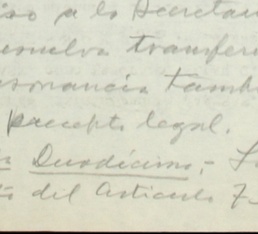 iso a la Secretar
esuelva transferi
sonancia tambi
precepto legal.
Duodécimo.-
del Articulo 7